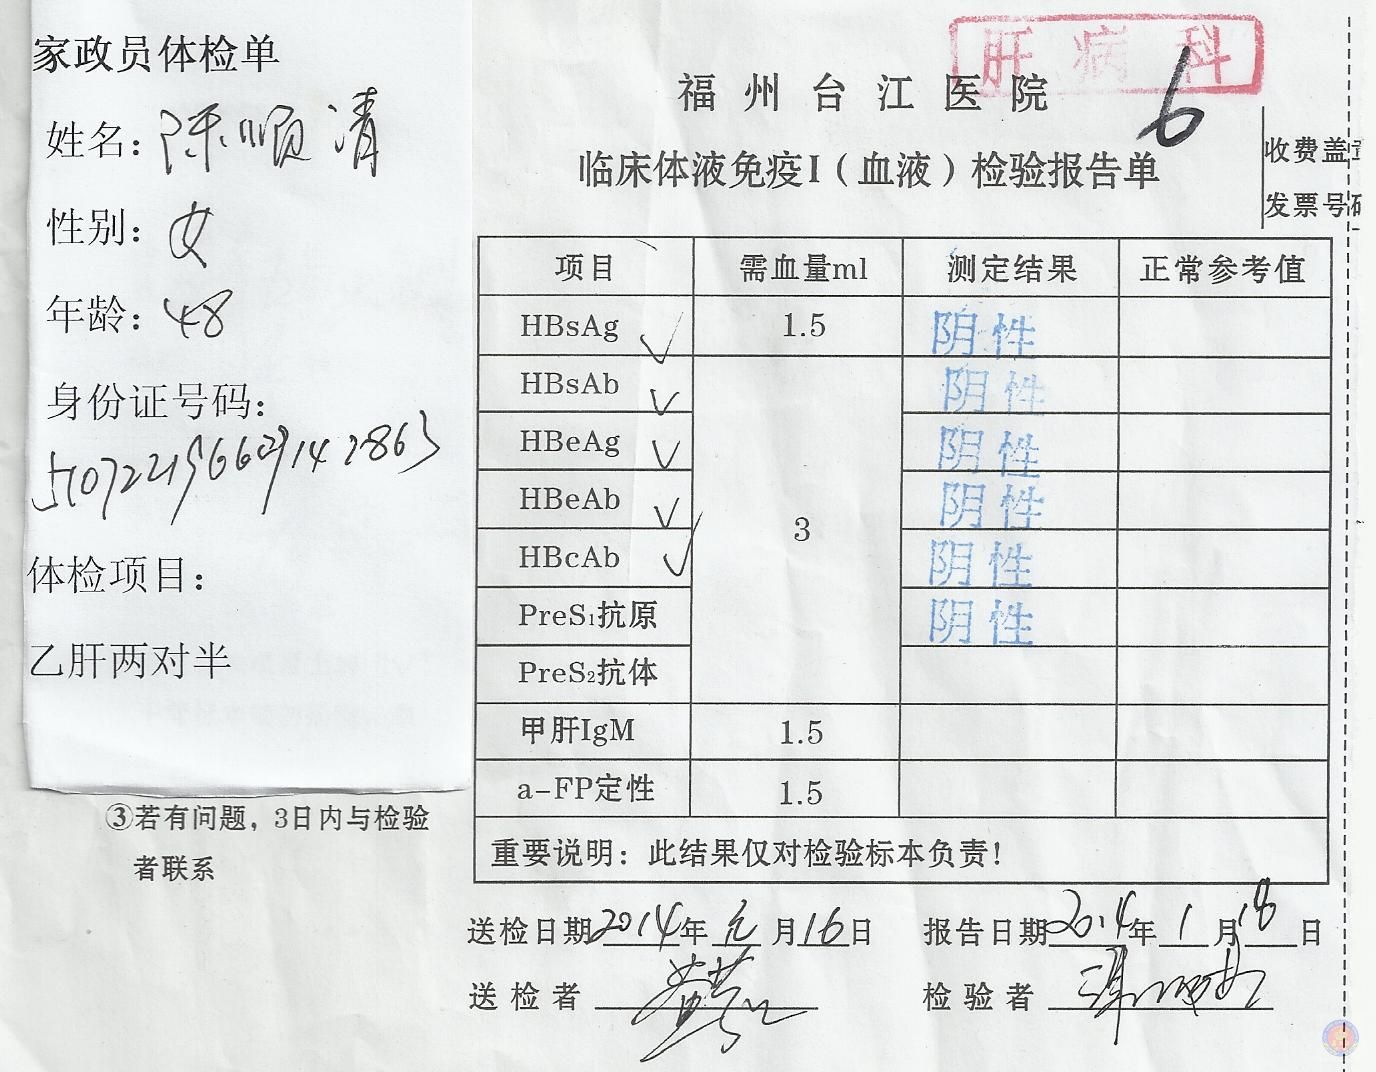 家政员体检单
姓名：陈顺清
性别：女
年龄：48
身份证号码：
体检项目：
乙肝两对半
③若有问题，3日内与检验
者联系
肝病科
福州台江医院
6
临床体液免疫I（血液）检验报告单
收费盖章
发票号码
项目 需血量ml 测定结果 正常参考值
HBsAg ✓ 1.5 阴性
HBsAb ✓ 阴性
HBeAg ✓ 阴性
HBeAb ✓ 3 阴性
HBcAb ✓ 阴性
PreS₁抗原 阴性
PreS₂抗体
甲肝IgM 1.5
a-FP定性 1.5
重要说明：此结果仅对检验标本负责！
送检日期2014年元月16日 报告日期2014年1月18日
送检者 检验者